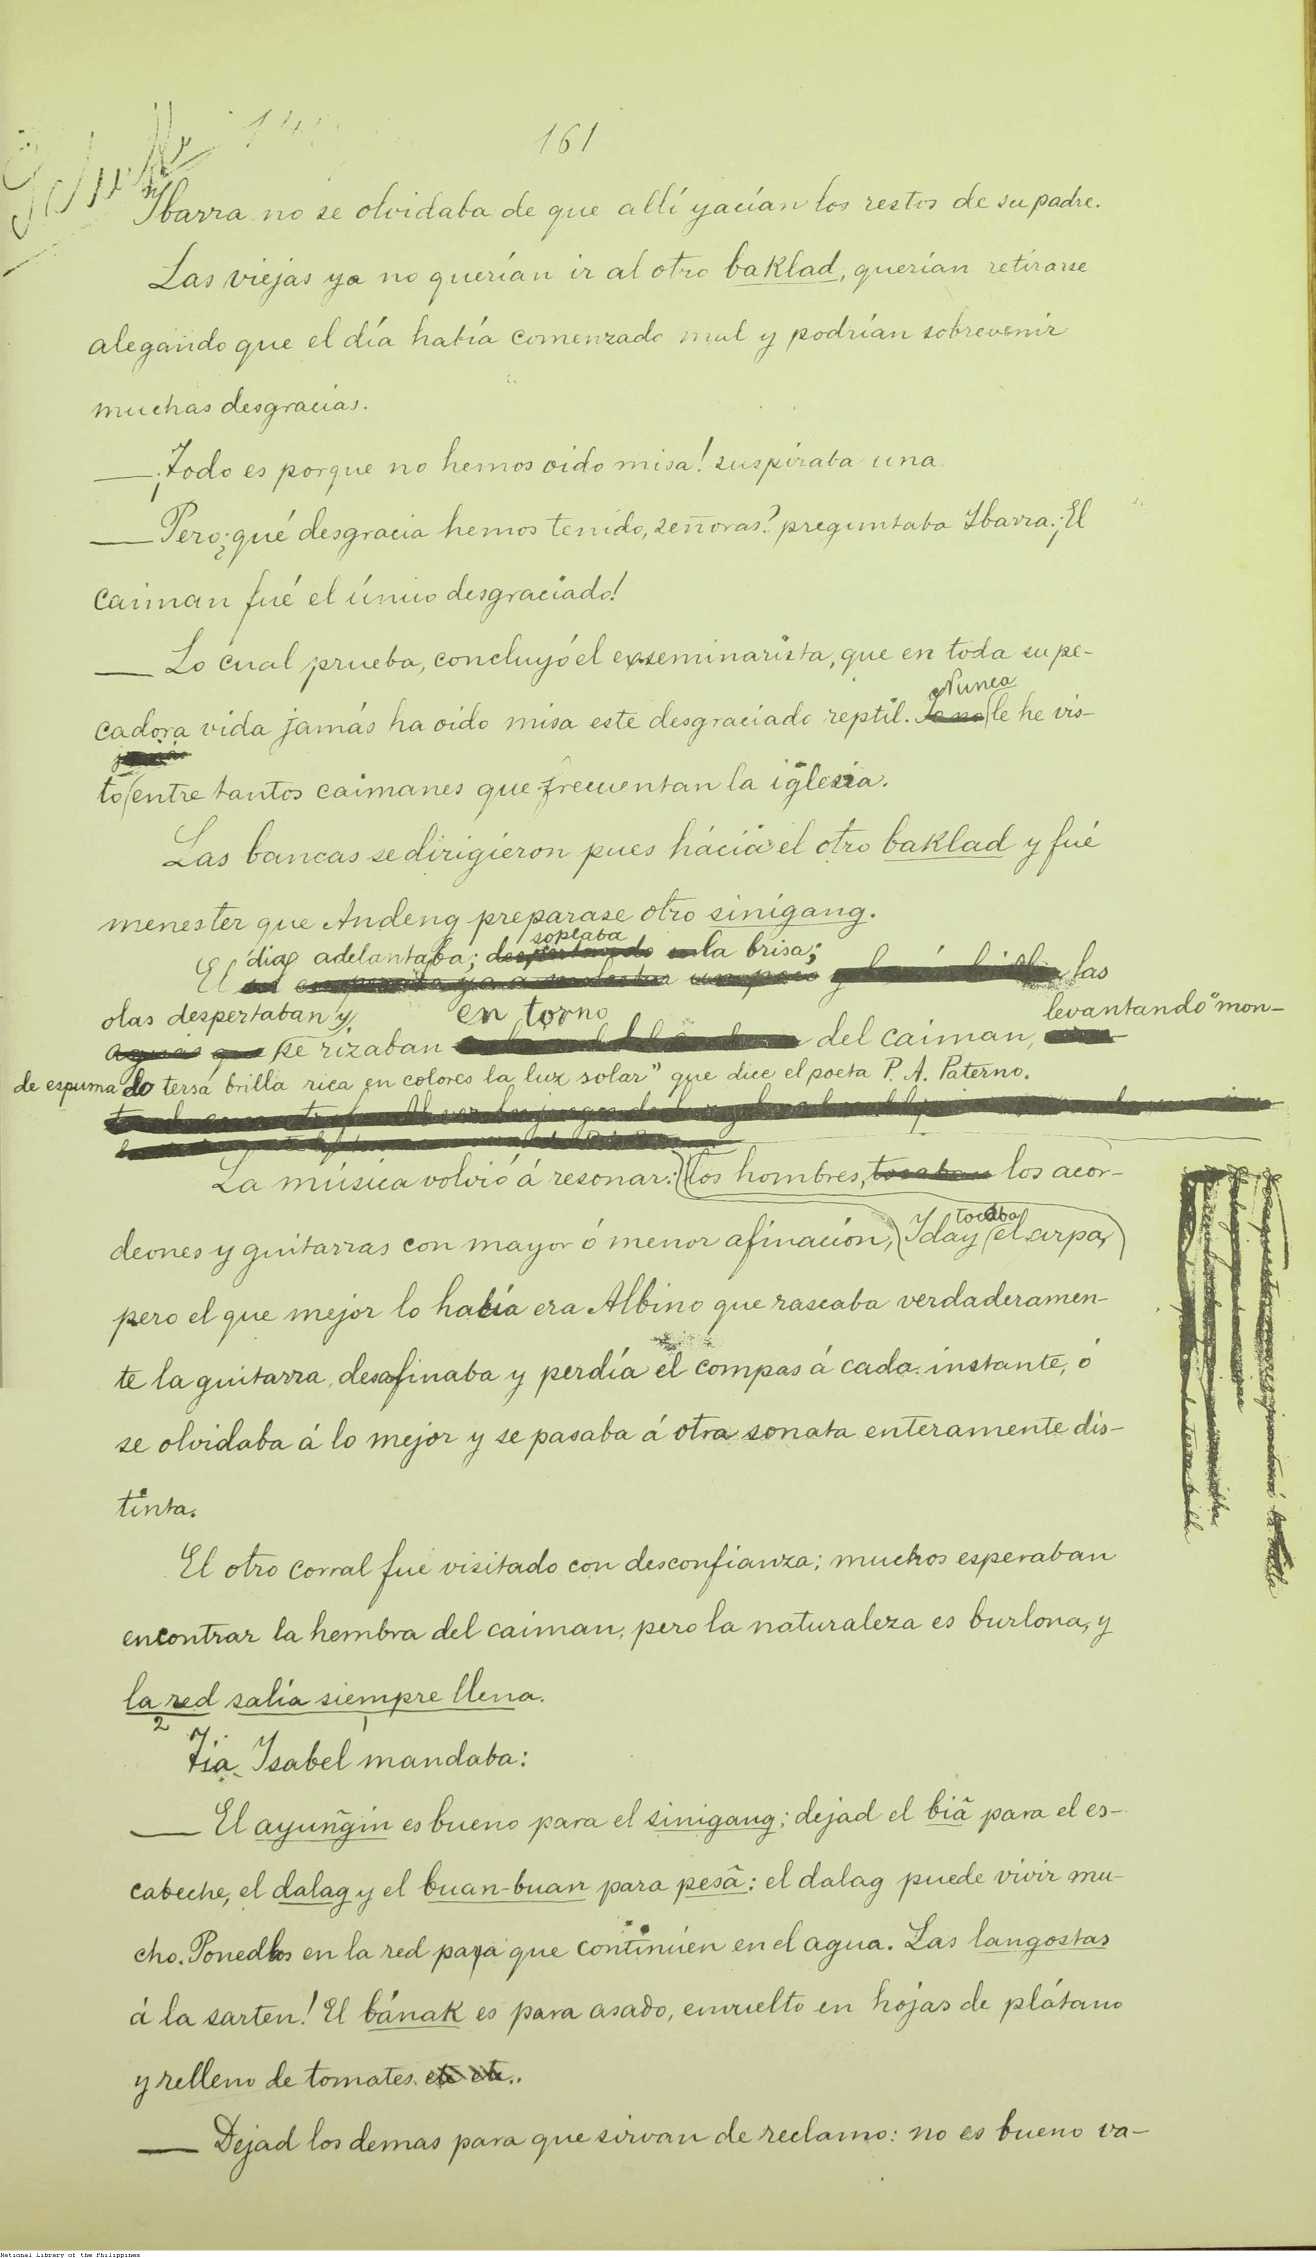 161
Ibarra no se olvidaba de que allí yacían los restos de su padre.
Las viejas ya no querían ir al otro baklad, querían retirarse
alegando que el día había comenzado mal y podrían sobrevenir
muchas desgracias.
— ¡Todo es porque no hemos oido misa! suspiraba una
— Pero ¿qué desgracia hemos tenido, señoras? preguntaba Ibarra. ¡El
caiman fué el único desgraciado!
— Lo cual prueba, concluyó el exseminarista, que en toda su pe-
Nunca
cadora vida jamás ha oido misa este desgraciado reptil. le he vis-
to entre tantos caimanes que frecuentan la iglesia.
Las bancas se dirigieron pues hácia el otro baklad y fué
menester que Andeng preparase otro sinigang.
soplaba
dia adelantaba; la brisa;
El las
olas despertaban y en torno levantando "mon-
se rizaban del caiman,
de espuma do tersa brilla rica en colores la luz solar" que dice el poeta P. A. Paterno.
La música volvió á resonar: los hombres, los acor-
tocaba
deones y guitarras con mayor ó menor afinación, Iday el arpa,
pero el que mejor lo hacía era Albino que rascaba verdaderamen-
te la guitarra, desafinaba y perdía el compas á cada instante, ó
se olvidaba á lo mejor y se pasaba á otra sonata enteramente dis-
tinta.
El otro corral fue visitado con desconfianza; muchos esperaban
encontrar la hembra del caiman, pero la naturaleza es burlona, y
la red salía siempre llena.
2 1
Tia Isabel mandaba:
— El ayuñgin es bueno para el sinigang; dejad el biâ para el es-
cabeche, el dalag y el buan-buan para pesâ: el dalag puede vivir mu-
cho. Ponedlos en la red para que continúen en el agua. Las langostas
á la sarten! El bának es para asado, envuelto en hojas de plátano
y relleno de tomates. etc etc..
— Dejad los demas para que sirvan de reclamo: no es bueno va-
National Library of the Philippines